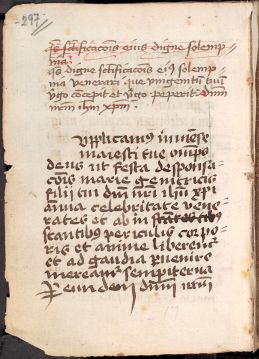 297
sanctificacionis eius digne solemp=
nia
digne sanctificacionis eius solemp=
nia venerari que unigenitum tuum
virgo concepit et virgo peperit dnm
nrm ihm xpm
upplicamus immense
maiesti tue omps
deus ut festa desponsa
cois marie genitricis
filij tui dni nri ihu xpi
annua celebritate vene
rates et ab in
stantibus periculis corpo
ris et anime liberemur
et ad gaudia pervenire
mereamur sempiterna
Per eundem dnm nrm